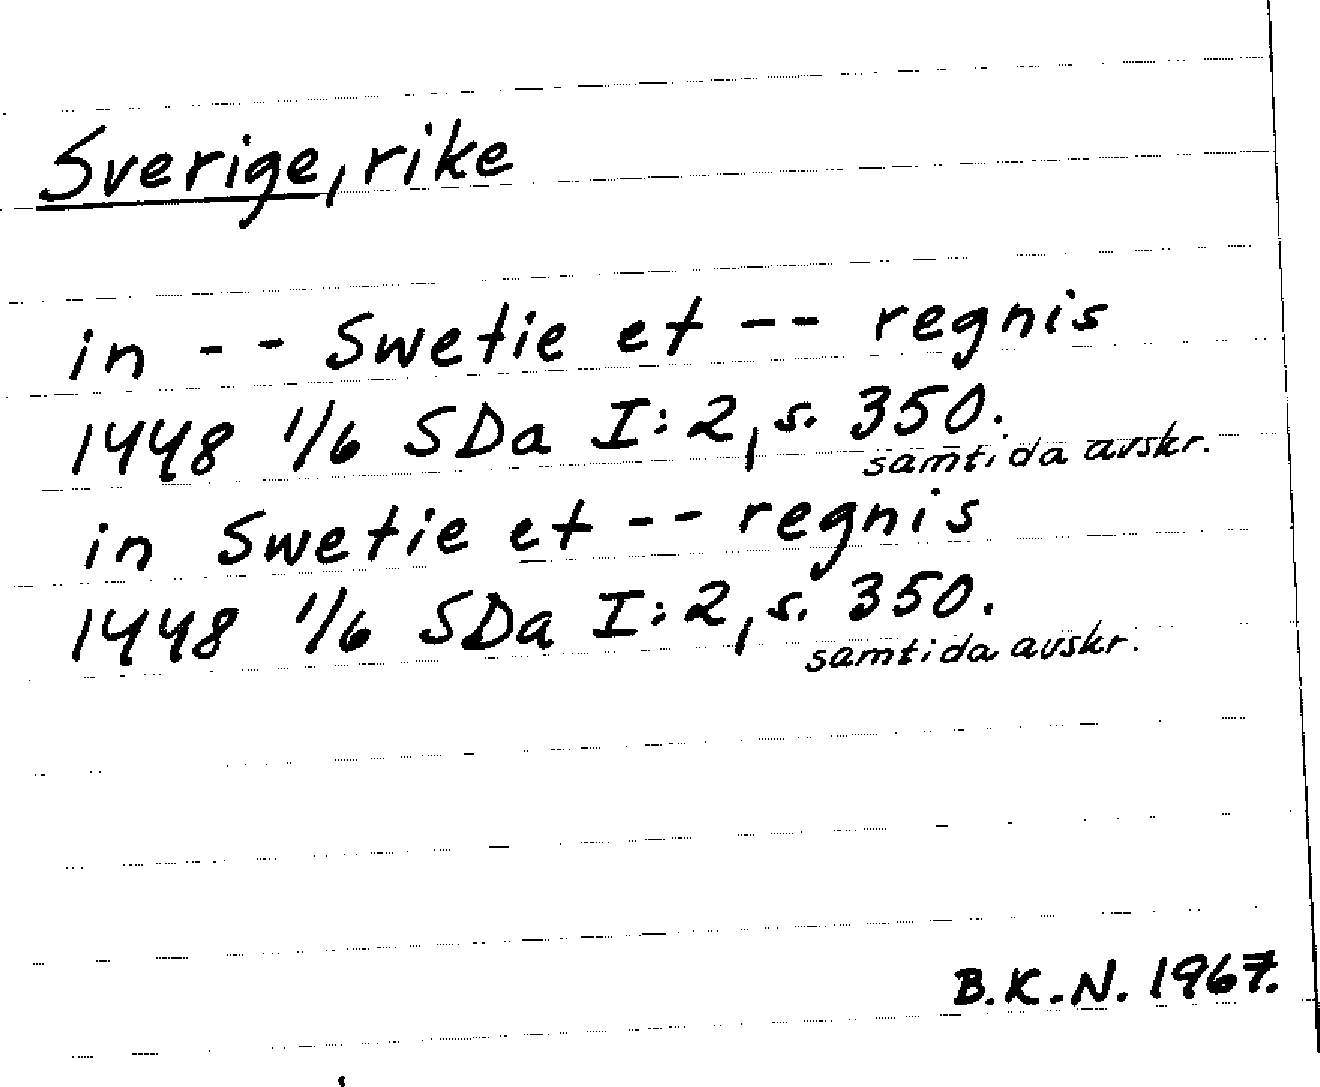 Sverige, rike
in -- Swetie et -- regnis
1448 1/6 SDa I:2, s. 350.
samtida avskr.
in Swetie et -- regnis
1448 1/6 SDa I:2, s. 350.
samtida avskr.
B.K.N. 1967.